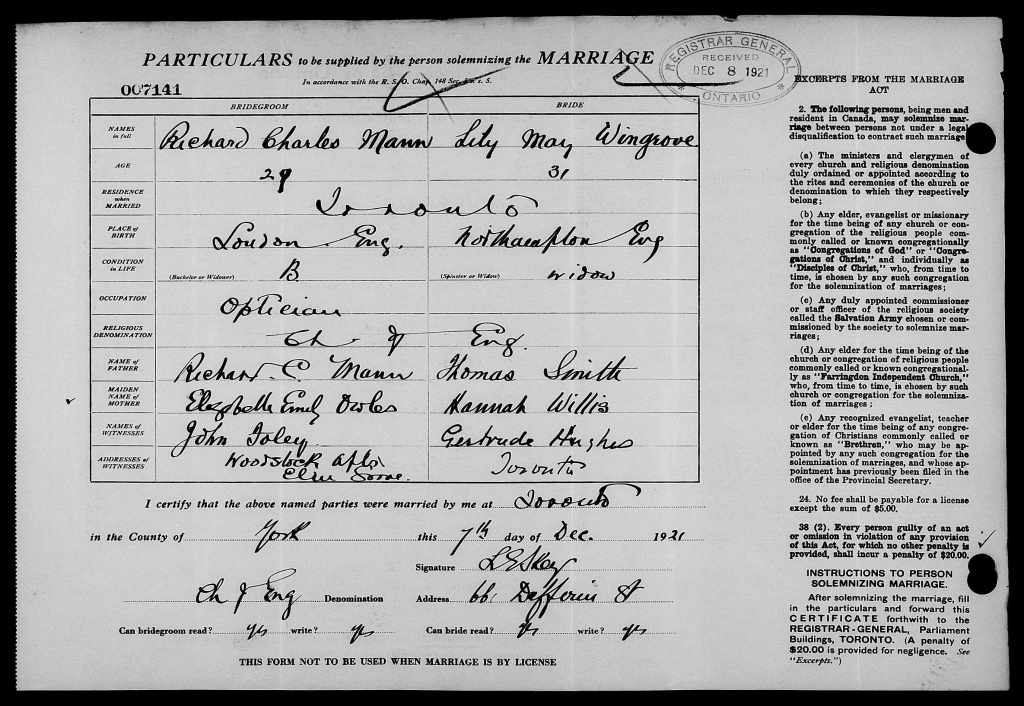 PARTICULARS to be supplied by the person solemnizing the MARRIAGE
In accordance with the R. S. O. Chap. 148 Sec. s. S.
REGISTRAR GENERAL
RECEIVED
DEC 8 1921
ONTARIO
007141
BRIDEGROOM BRIDE
NAMES in full Richard Charles Mann Lily May Wingrove
AGE 29 31
RESIDENCE when MARRIED Toronto
PLACE of BIRTH London Eng. Northampton Eng
CONDITION in LIFE (Bachelor or Widower) B. (Spinster or Widow) widow
OCCUPATION Optician
RELIGIOUS DENOMINATION Ch of Eng.
NAME of FATHER Richard C. Mann Thomas Smith
MAIDEN NAME of MOTHER Elizabeth Emily Hannah Willis
NAMES of WITNESSES John Foley Gertrude Hughes
ADDRESSES of WITNESSES Woodstock Apts Toronto
Elm Grove.
I certify that the above named parties were married by me at Toronto
in the County of York this 7th day of Dec. 1921
Signature
Ch of Eng Denomination Address 661 Dufferin St
Can bridegroom read? yes write? yes Can bride read? yes write? yes
THIS FORM NOT TO BE USED WHEN MARRIAGE IS BY LICENSE
EXCERPTS FROM THE MARRIAGE
ACT
2. The following persons, being men and
resident in Canada, may solemnize mar-
riage between persons not under a legal
disqualification to contract such marriage
(a) The ministers and clergymen of
every church and religious denomination
duly ordained or appointed according to
the rites and ceremonies of the church or
denomination to which they respectively
belong;
(b) Any elder, evangelist or missionary
for the time being of any church or con-
gregation of the religious people com-
monly called or known congregationally
as "Congregations of God" or "Congre-
gations of Christ," and individually as
"Disciples of Christ," who, from time to
time, is chosen by any such congregation
for the solemnization of marriages;
(c) Any duly appointed commissioner
or staff officer of the religious society
called the Salvation Army chosen or com-
missioned by the society to solemnize mar-
riages;
(d) Any elder for the time being of the
church or congregation of religious people
commonly called or known congregational-
ly as "Farringdon Independent Church,"
who, from time to time, is chosen by such
church or congregation for the solemniza-
tion of marriages;
(e) Any recognized evangelist, teacher
or elder for the time being of any congre-
gation of Christians commonly called or
known as "Brethren," who may be ap-
pointed by any such congregation for the
solemnization of marriages, and whose ap-
pointment has previously been filed in the
office of the Provincial Secretary.
24. No fee shall be payable for a license
except the sum of $5.00.
38 (2). Every person guilty of an act
or omission in violation of any provision
of this Act, for which no other penalty is
provided, shall incur a penalty of $20.00.
INSTRUCTIONS TO PERSON
SOLEMNIZING MARRIAGE.
After solemnizing the marriage, fill
in the particulars and forward this
CERTIFICATE forthwith to the
REGISTRAR-GENERAL, Parliament
Buildings, TORONTO. (A penalty of
$20.00 is provided for negligence. See
"Excerpts.")